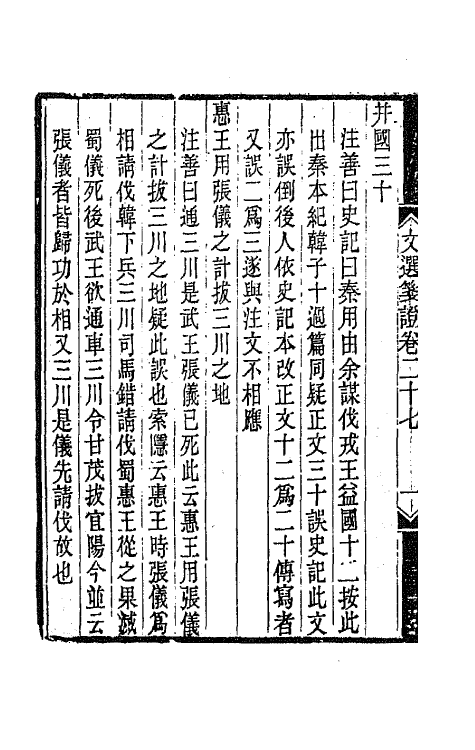 文選箋證卷二十七
并國三十
注善曰史記曰秦用由余謀伐戎王益國十二按此
出秦本紀韓子十過篇同疑正文三十誤史記此文
亦誤倒後人依史記本改正文十二爲二十傳寫者
又誤二爲三遂與注文不相應
惠王用張儀之計拔三川之地
注善曰通三川是武王張儀已死此云惠王用張儀
之計拔三川之地疑此誤也索隱云惠王時張儀爲
相請伐韓下兵三川司馬錯請伐蜀惠王從之果滅
蜀儀死後武王欲通車三川令甘茂拔宜陽今並云
張儀者皆歸功於相又三川是儀先請伐故也